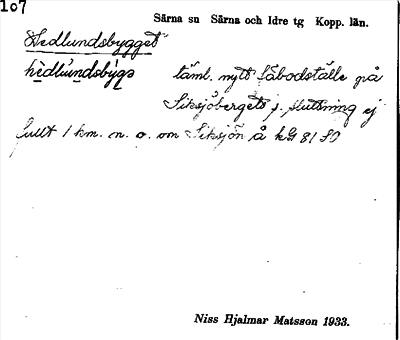 107
Särna sn Särna och Idre tg Kopp. län.
Hedlundsbygget
hèdlu̇ndsbýgə täml. nytt fäbodställe på
Siksjöbergets s. sluttning ej
fullt 1 km. n. o. om Siksjön å kG 81 SO
Niss Hjalmar Matsson 1933.